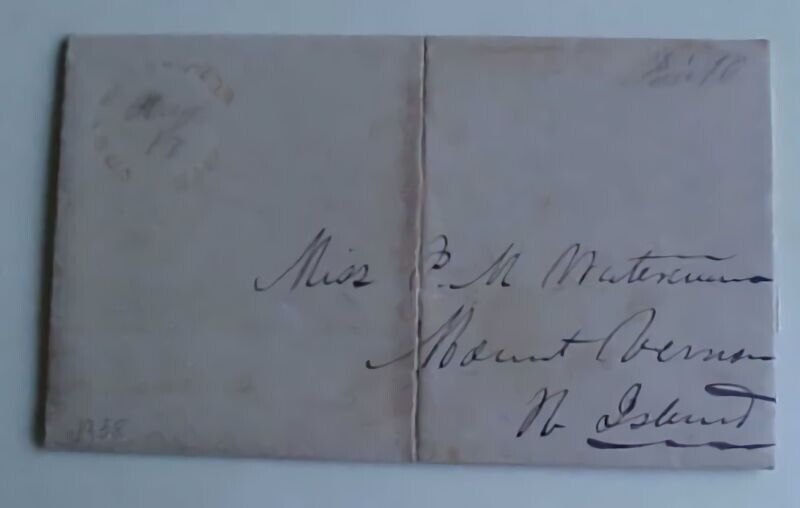 May
17
Miss P. M Waterman
Mount Vernon
R Island
1838